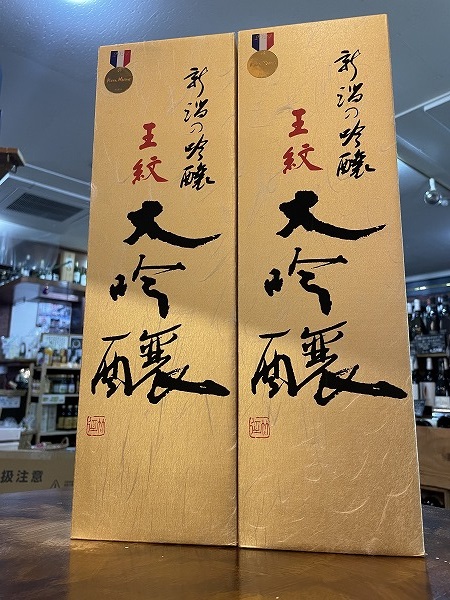 新潟の吟醸
王紋
大吟醸
新潟の吟醸
王紋
大吟醸
扱注意